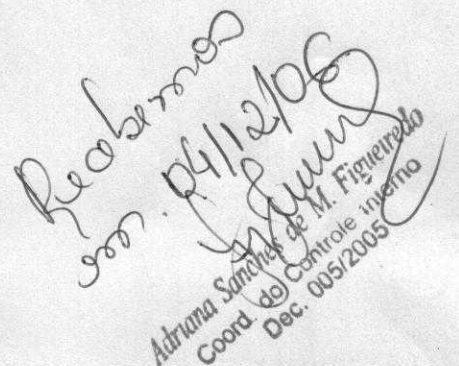 Recebemos
em. 04/12/06
Adriana Sanches de M. Figueiredo
Coord. do Controle interno
Dec. 005/2005